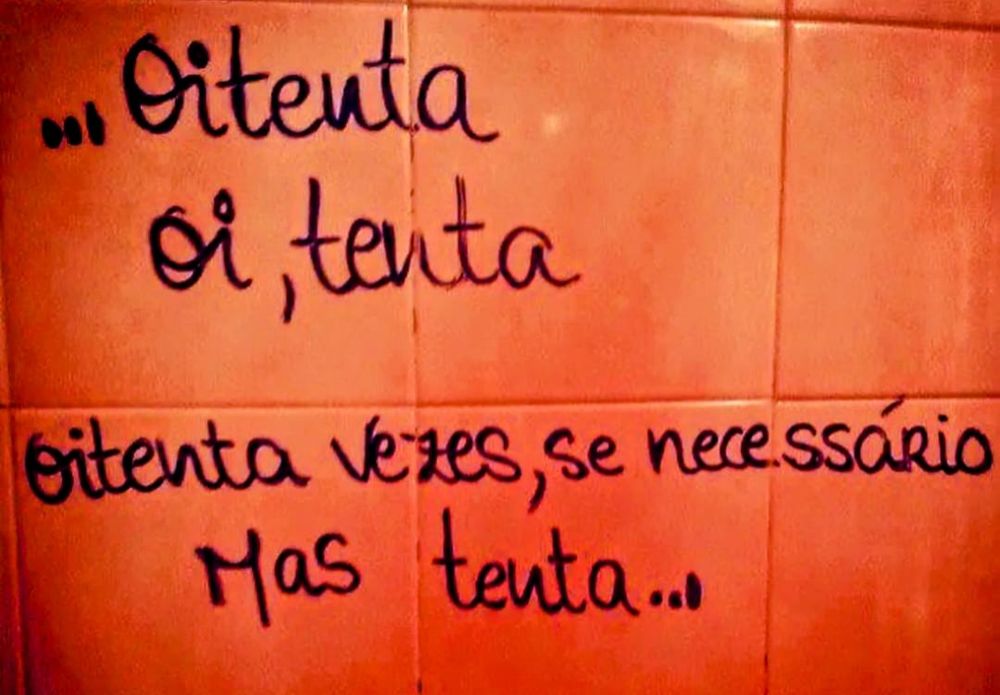 ...Oitenta
Oi, tenta
Oitenta vezes, se necessário
Mas tenta...